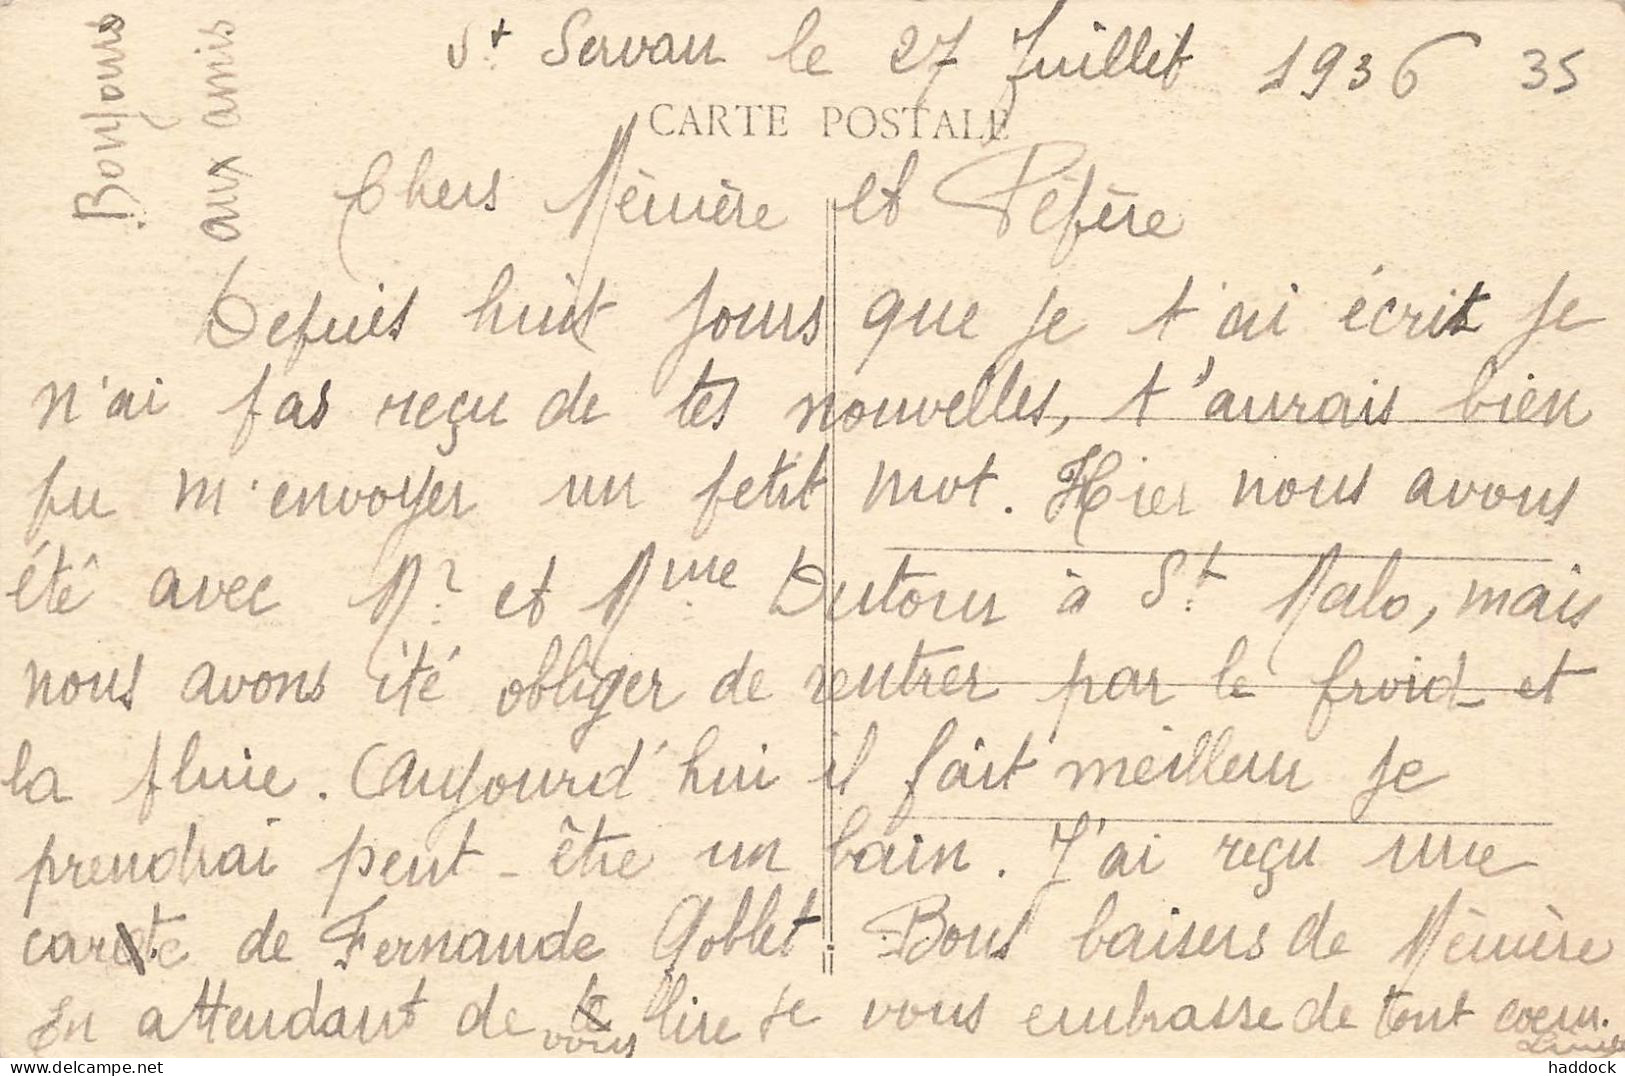 St Servan le 27 Juillet 1936 35
CARTE POSTALE
Bonjours
aux amis
Chers Mémère et Péfère
Depuis huit jours que je t'ai écrit je
n'ai pas reçu de tes nouvelles, t'aurais bien
pu m'envoyer un petit mot. Hier nous avons
été avec Mr. et Mme Dutour à St Malo, mais
nous avons été obliger de rentrer par le froid et
la pluie. Aujourd'hui il fait meilleur je
prendrai peut-être un bain. J'ai reçu une
carte de Fernande Goblet. Bons baisers de Mémère
En attendant de vous lire je vous embrasse de tout coeur.
delcampe.net
haddock